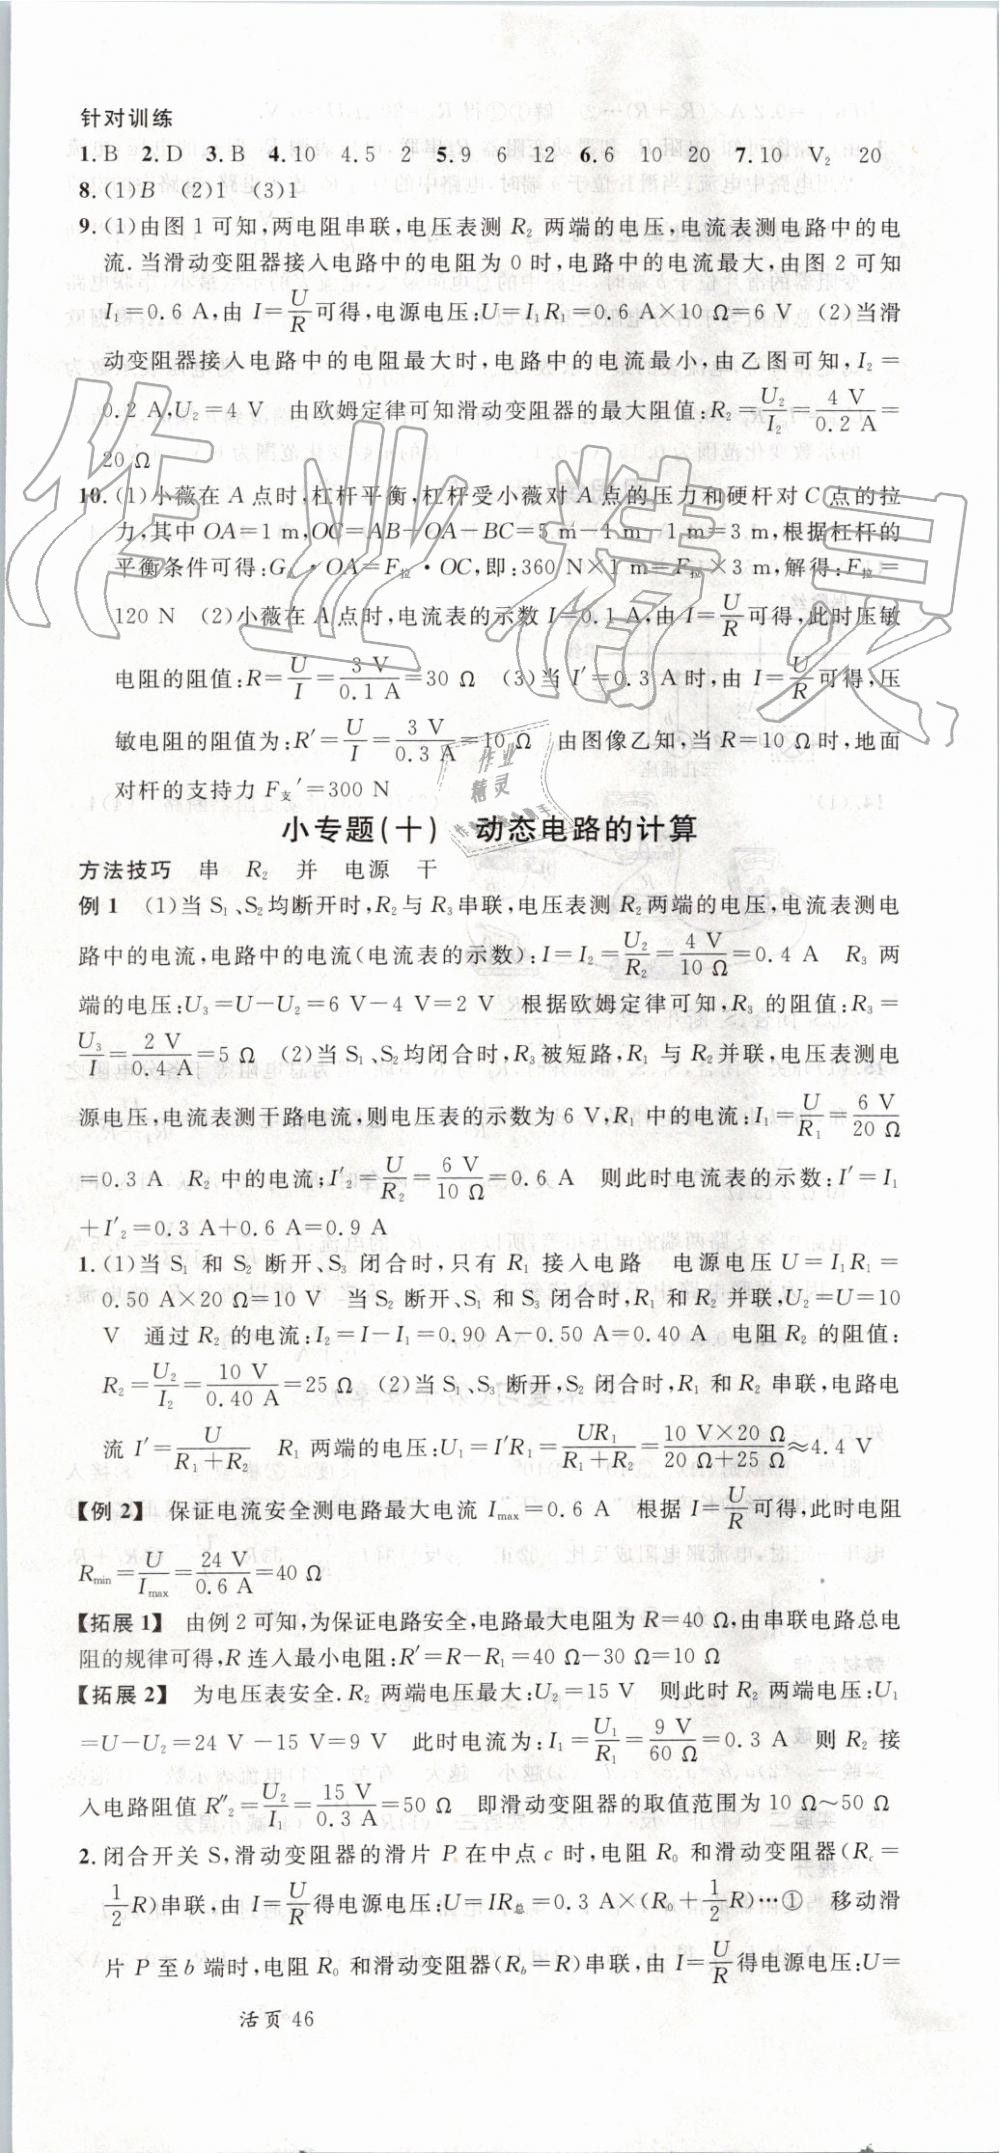 针对训练
1.B 2.D 3.B 4.10 4.5 2 5.9 6 12 6.6 10 20 7.10 V₂ 20
8.(1)B (2)1 (3)1
9.(1)由图1可知,两电阻串联,电压表测R₂两端的电压,电流表测电路中的电
流.当滑动变阻器接入电路中的电阻为0时,电路中的电流最大,由图2可知
I₁=0.6 A,由I=U/R可得,电源电压:U=I₁R₁=0.6 A×10 Ω=6 V (2)当滑
动变阻器接入电路中的电阻最大时,电路中的电流最小,由乙图可知,I₂=
0.2 A,U₂=4 V 由欧姆定律可知滑动变阻器的最大阻值:R₂=U₂/I₂=4 V/0.2 A=
20 Ω
10.(1)小薇在A点时,杠杆平衡,杠杆受小薇对A点的压力和硬杆对C点的拉
力,其中OA=1 m,OC=AB-OA-BC=5 m-1 m-1 m=3 m,根据杠杆的
平衡条件可得:G人·OA=F拉·OC,即:360 N×1 m=F拉×3 m,解得:F拉=
120 N (2)小薇在A点时,电流表的示数I=0.1 A,由I=U/R可得,此时压敏
电阻的阻值:R=U/I=3 V/0.1 A=30 Ω (3)当I′=0.3 A时,由I=U/R可得,压
敏电阻的阻值为:R′=U/I′=3 V/0.3 A=10 Ω 由图像乙知,当R=10 Ω时,地面
对杆的支持力F支′=300 N
小专题(十) 动态电路的计算
方法技巧 串 R₂ 并 电源 干
例1 (1)当S₁、S₂均断开时,R₂与R₃串联,电压表测R₂两端的电压,电流表测电
路中的电流,电路中的电流(电流表的示数):I=I₂=U₂/R₂=4 V/10 Ω=0.4 A R₃两
端的电压:U₃=U-U₂=6 V-4 V=2 V 根据欧姆定律可知,R₃的阻值:R₃=
U₃/I=2 V/0.4A=5 Ω (2)当S₁、S₂均闭合时,R₃被短路,R₁与R₂并联,电压表测电
源电压,电流表测干路电流,则电压表的示数为6 V,R₁中的电流:I₁=U/R₁=6 V/20 Ω
=0.3 A R₂中的电流:I′₂=U/R₂=6 V/10 Ω=0.6 A 则此时电流表的示数:I′=I₁
+I′₂=0.3 A+0.6 A=0.9 A
1.(1)当S₁和S₂断开、S₃闭合时,只有R₁接入电路 电源电压U=I₁R₁=
0.50 A×20 Ω=10 V 当S₂断开、S₁和S₃闭合时,R₁和R₂并联,U₂=U=10
V 通过R₂的电流:I₂=I-I₁=0.90 A-0.50 A=0.40 A 电阻R₂的阻值:
R₂=U₂/I₂=10 V/0.40 A=25 Ω (2)当S₁、S₃断开,S₂闭合时,R₁和R₂串联,电路电
流I′=U/(R₁+R₂) R₁两端的电压:U₁=I′R₁=UR₁/(R₁+R₂)=10 V×20 Ω/(20 Ω+25 Ω)≈4.4 V
【例2】 保证电流安全测电路最大电流Imax=0.6 A 根据I=U/R可得,此时电阻
Rmin=U/Imax=24 V/0.6 A=40 Ω
【拓展1】 由例2可知,为保证电路安全,电路最大电阻为R=40 Ω,由串联电路总电
阻的规律可得,R连入最小电阻:R′=R-R₁=40 Ω-30 Ω=10 Ω
【拓展2】 为电压表安全.R₂两端电压最大:U₂=15 V 则此时R₂两端电压:U₁
=U-U₂=24 V-15 V=9 V 此时电流为:I₁=U₁/R₁=9 V/60 Ω=0.3 A 则R₂接
入电路阻值R″₂=U₂/I₁=15 V/0.3 A=50 Ω 即滑动变阻器的取值范围为10 Ω~50 Ω
2.闭合开关S,滑动变阻器的滑片P在中点c时,电阻R₀和滑动变阻器(Rc=
1/2R)串联,由I=U/R得电源电压:U=IR总=0.3 A×(R₀+1/2R)…① 移动滑
片P至b端时,电阻R₀和滑动变阻器(Rb=R)串联,由I=U/R得电源电压:U=
活页 46
作业精灵
作业
精灵